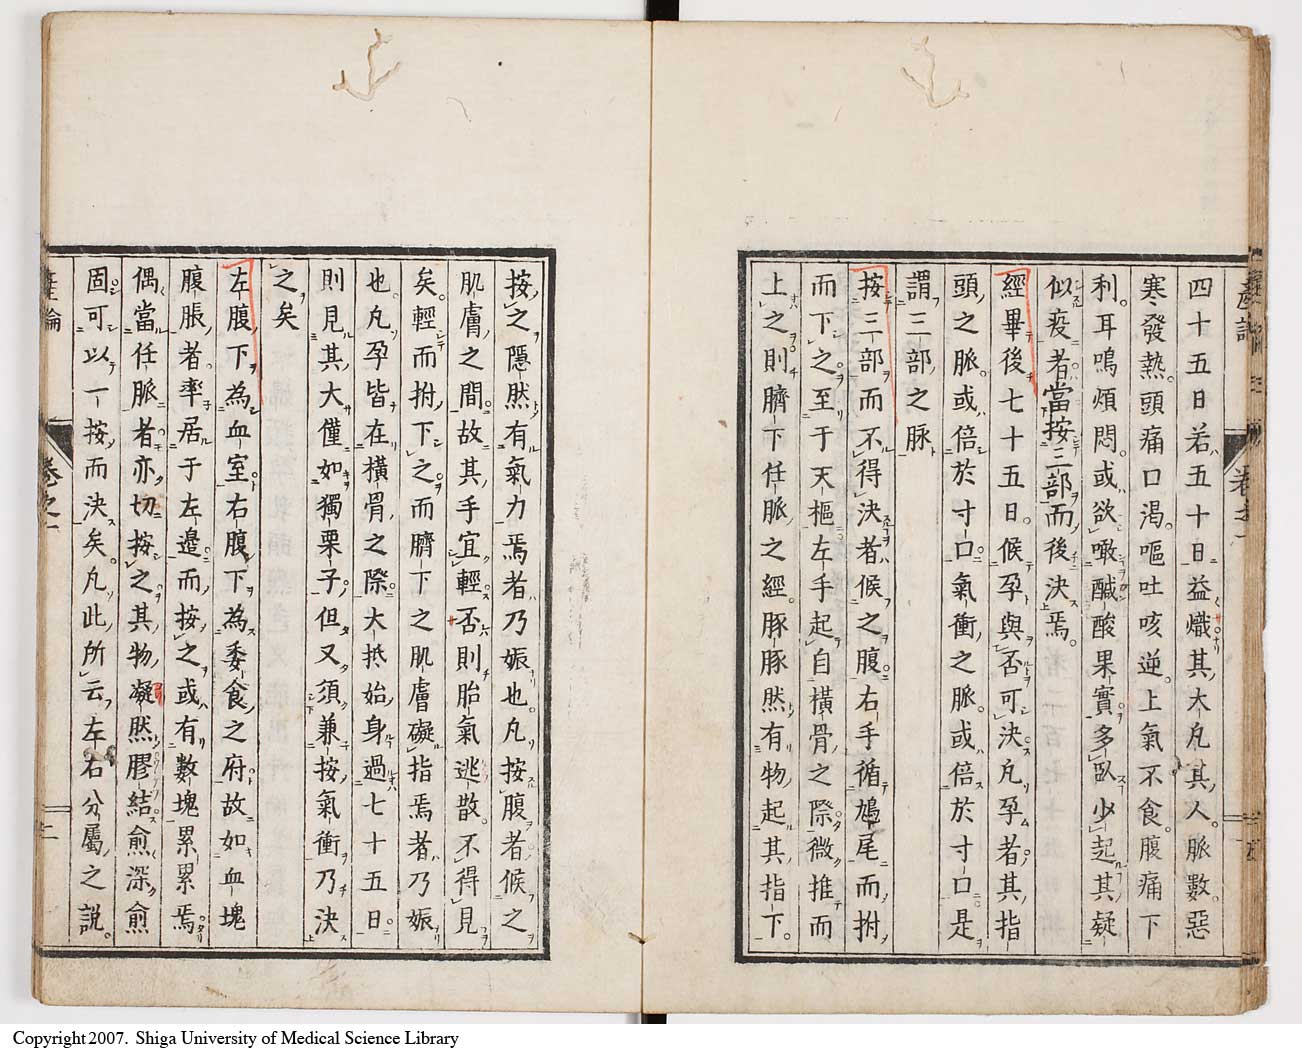 四十五日若五十日益熾其大凡其人脈數惡
寒發熱頭痛口渴嘔吐咳逆上氣不食腹痛下
利耳鳴煩悶或欲噉醎酸果實多臥少起其疑
似疫者當按三部而後決焉
經畢後七十五日候孕與否可決凡孕者其指
頭之脈或倍於寸口氣衝之脈或倍於寸口是
謂三部之脈
按三部而不得決者候之腹右手循鳩尾而拊
而下之至于天樞左手起自橫骨之際微推而
上之則臍下任脈之經豚豚然有物起其指下
按之隱然有氣力焉者乃娠也凡按腹者候之
肌膚之間故其手宜輕否則胎氣逃散不得見
矣輕而拊下之而臍下之肌膚礙指焉者乃娠
也凡孕皆在橫骨之際大抵始身過七十五日
則見其大僅如獨栗子但又須兼按氣衝乃決
之矣
左腹下為血室右腹下為委食之府故如血塊
腹脹者率居于左邉而按之或有數塊累累焉
偶當任脈者亦切按之其物凝然膠結愈深愈
固可以一按而決矣凡此所云左右分屬之說
產論
卷之一
二
Copyright 2007. Shiga University of Medical Science Library